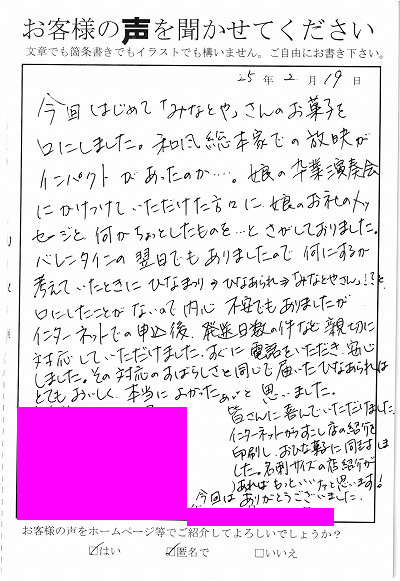 お客様の声を聞かせてください
文章でも箇条書きでもイラストでも構いません。ご自由にお書き下さい。
25年2月19日
今回はじめて「みなとや」さんのお菓子を
口にしました。和風総本家での放映が
インパクトがあったのか…。娘の卒業演奏会
にかけつけていただけた方々に、娘のお礼のメッ
セージと何かちょっとしたものを…とさがしておりました。
バレンタインの翌日でもありましたので何にするか
考えていたときにひなまつり⇒ひなあられ⇒「みなとやさん」!?と
口にしたことがないので内心 不安でもありましたが
インターネットでの申込後、発送日数の件など親切に
対応していただけました。すぐに電話をいただき、安心
しました。その対応のすばらしさと同じで届いたひなあられは
とてもおいしく、本当によかったぁいと思いました。
皆さんに喜んでいただけました。
インターネットからすこし店の紹介を
印刷し、おひな菓子に同封しま
した。名刺サイズの店紹介が
あればもっといいナァと思います!
今回はありがとうございました。
お客様の声をホームページ等でご紹介してよろしいでしょうか？
☑はい ☑匿名で □いいえ